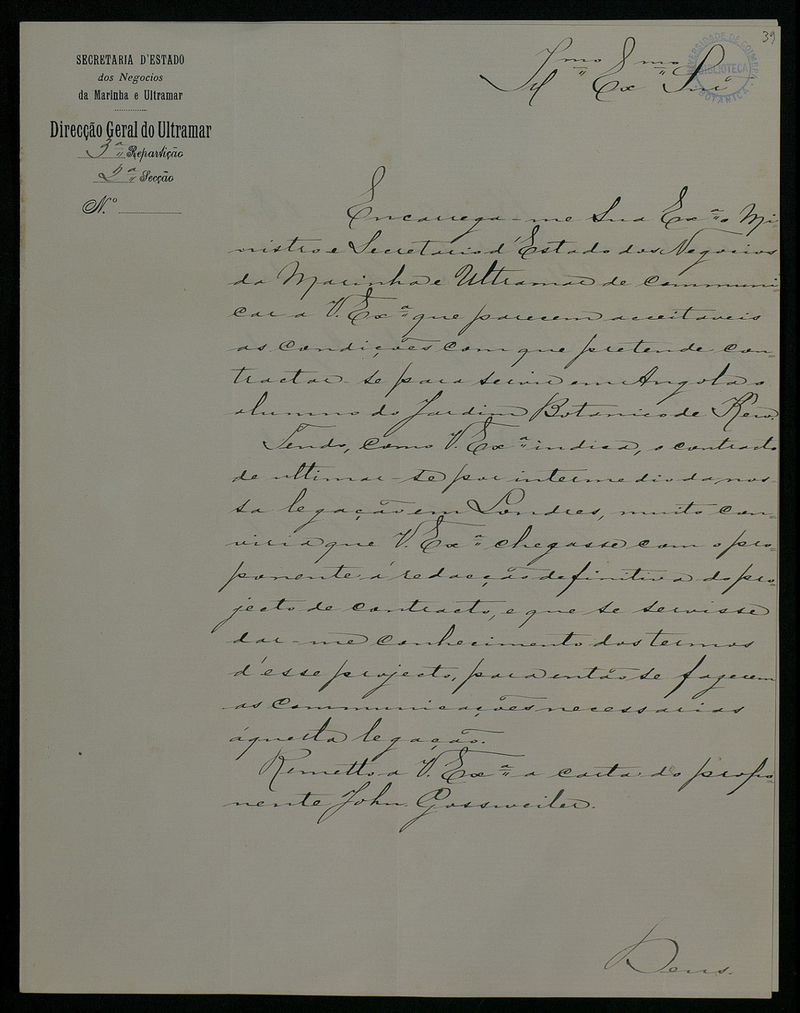 39
SECRETARIA D'ESTADO
dos Negocios
da Marinha e Ultramar
Direcção Geral do Ultramar
3ª Repartição
2ª Secção
N.º
UNIVERSIDADE DE COIMBRA
BIBLIOTECA
BOTANICA
Ill.mo Ex.mo Snr
Encarrega-me Sua Ex.ª o Mi-
nistro e Secretario d'Estado dos Negocios
da Marinha e Ultramar de communi-
car a V. Ex.ª que parecem acceitaveis
as condições com que pretende con-
tractar-se para servir em Angola o
alumno do Jardim Botanico de Kew.
Tendo, como V. Ex.ª indica, o contracto
de ultimar-se por intermedio da nos-
sa legação em Londres, muito con-
viria que V. Ex.ª chegasse com o pro-
ponente á redacção definitiva do pro-
jecto de contracto, e que se servisse
dar-me conhecimento dos termos
d'esse projecto, para então se fazerem
as communicações necessarias
áquella legação.
Remetto a V. Ex.ª a carta do propo-
nente John Gossweiler.
Deus.